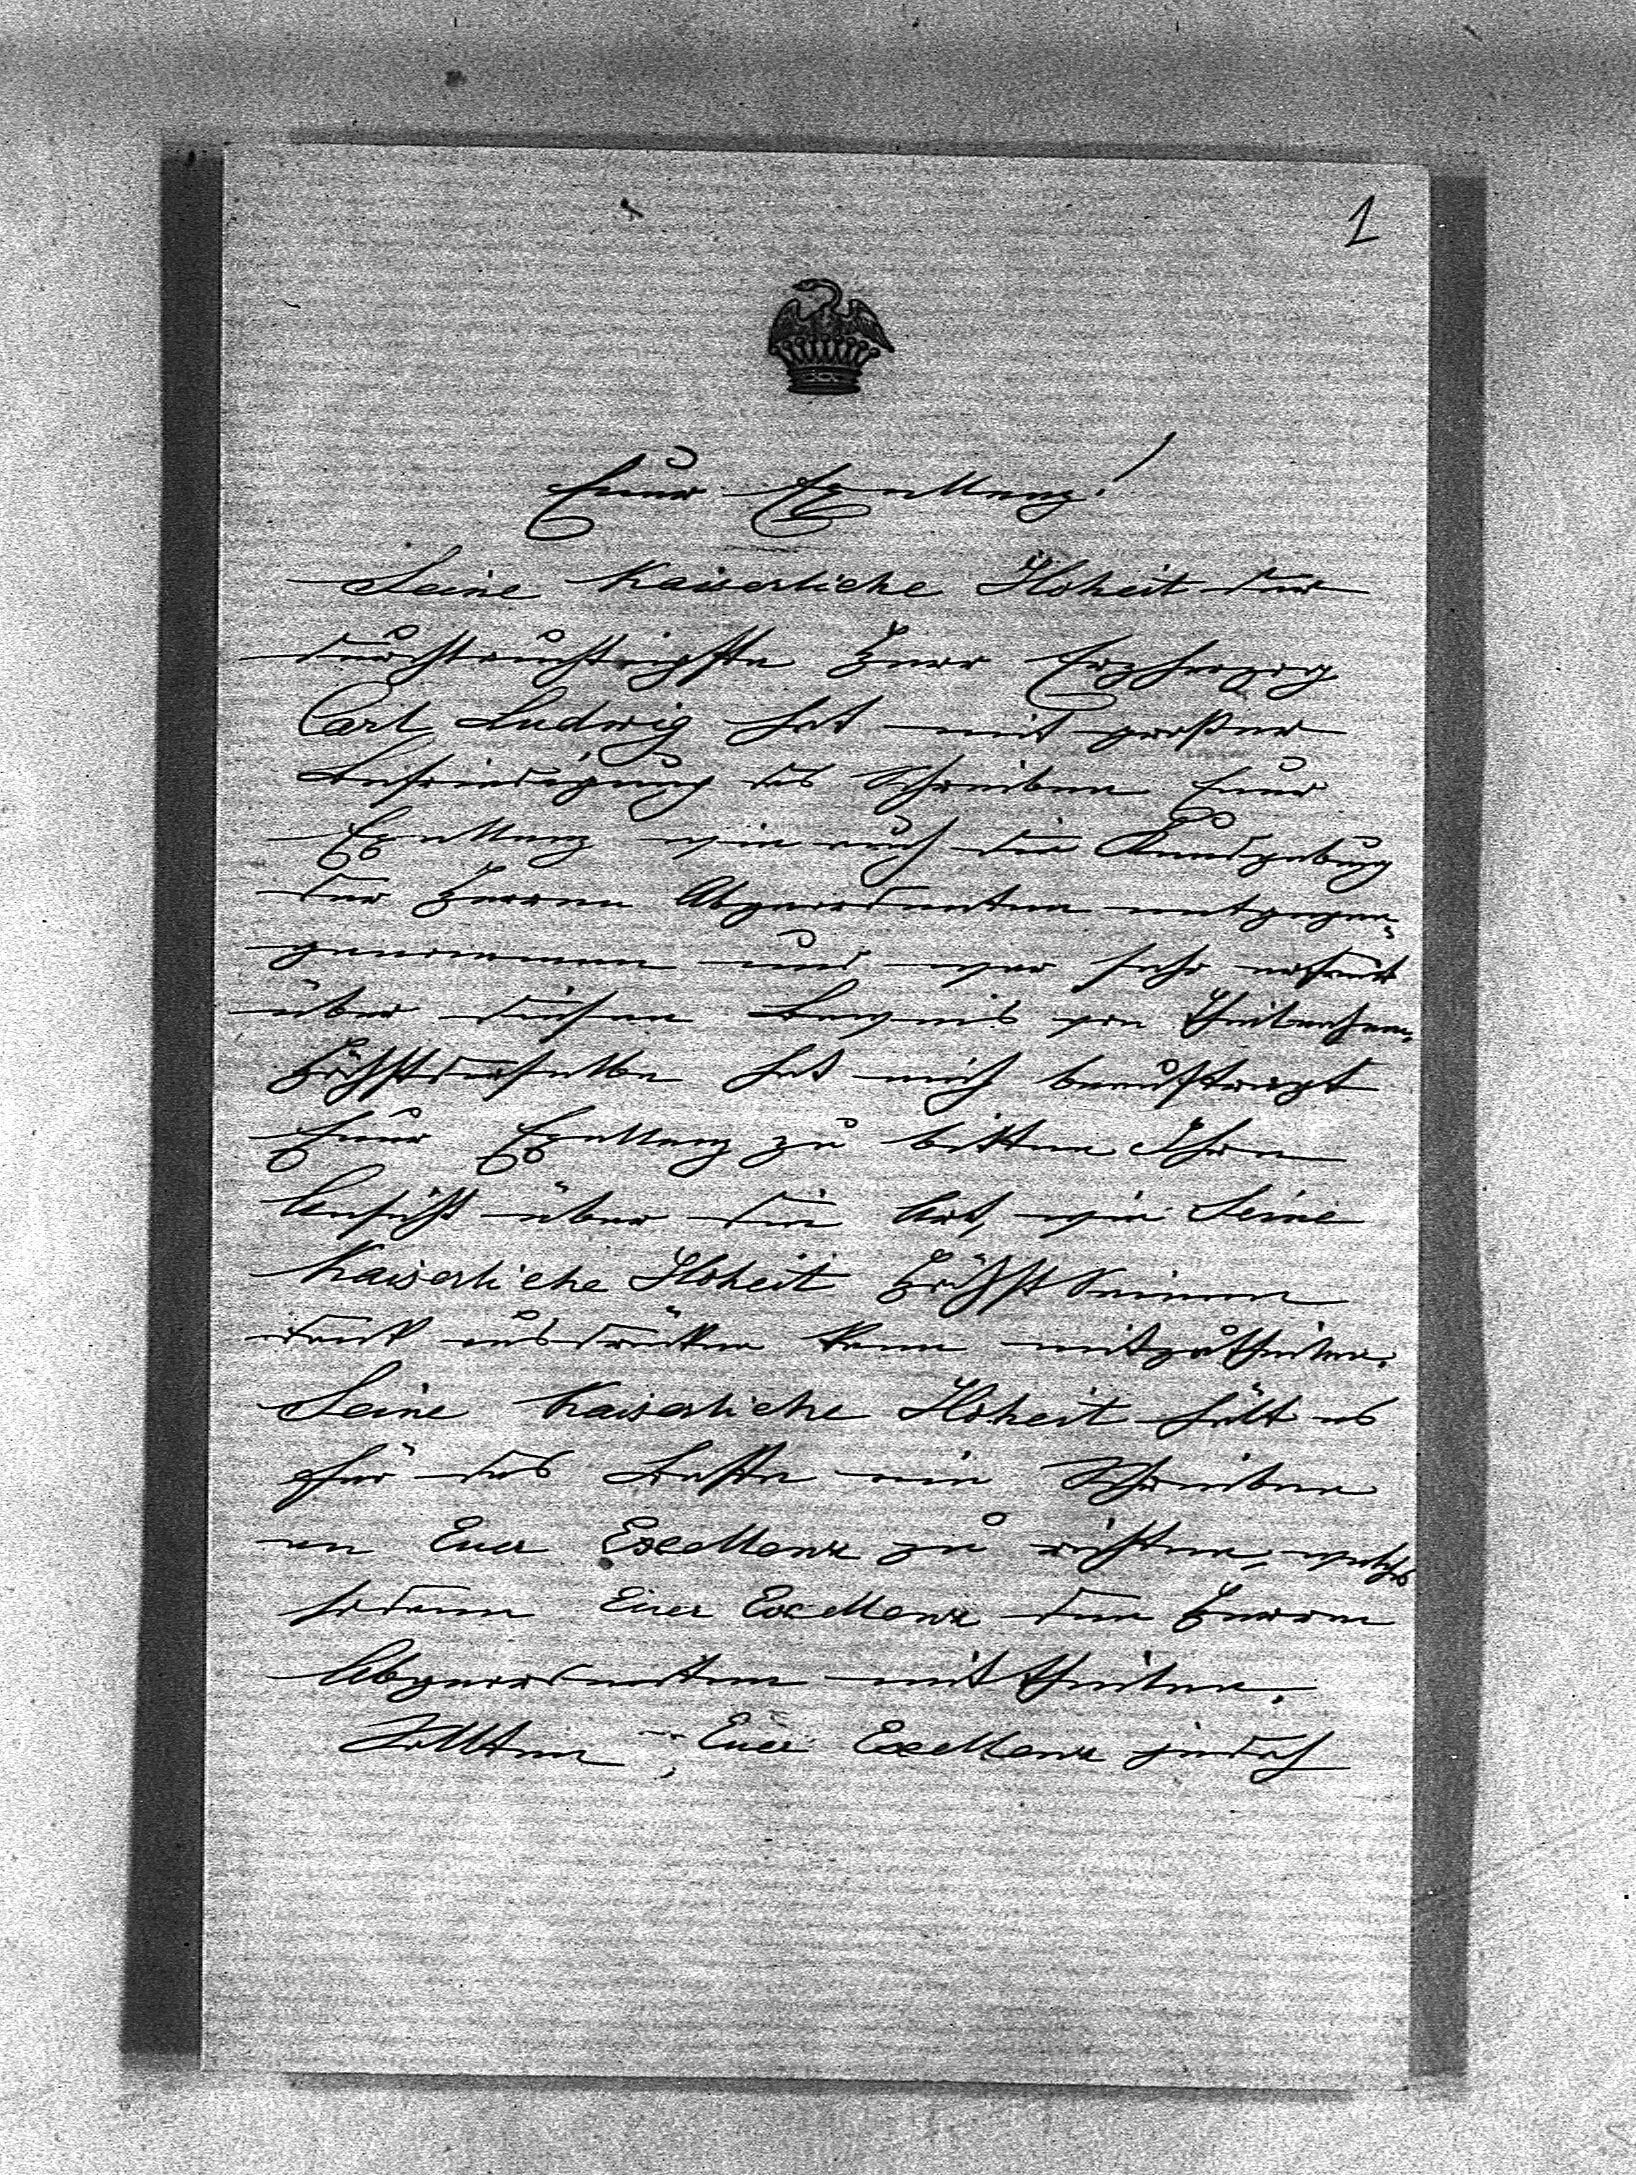 1
Euer Exzellenz!
Seine Kaiserliche Hoheit der
durchlauchtigste Herr Erzherzog
Carl Ludwig hat mit großer
Befriedigung das Schreiben Euer
Exzellenz wie auch die Kundgebung
der Herren Abgeordneten entgegen-
genommen und war sehr erfreut
über diesen Beweis von Theilnahme.
Höchstderselbe hat mich beauftragt
Euer Exzellenz zu bitten Ihre
Ansicht über die Art, wie Seine
Kaiserliche Hoheit Höchst Seinen
Dank ausdrücken kann mitzutheilen.
Seine Kaiserliche Hoheit hält es
für das Beste ein Schreiben
an Euer Excellenz zu richten, welches
sodann Euer Excellenz den Herren
Abgeordneten mittheilen.
Sollten Euer Excellenz jedoch